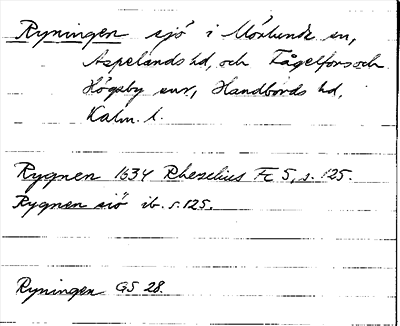 Ryningen sjö i Mörlunda sn,
Aspelands hd, och Fågelfors och
Högsby snr, Handbörds hd,
Kalm. l.
Rygnen 1634 Rhezelius Fc 5, s. 125.
Rygnen siö ib. s. 125.
Ryningen GS 28.